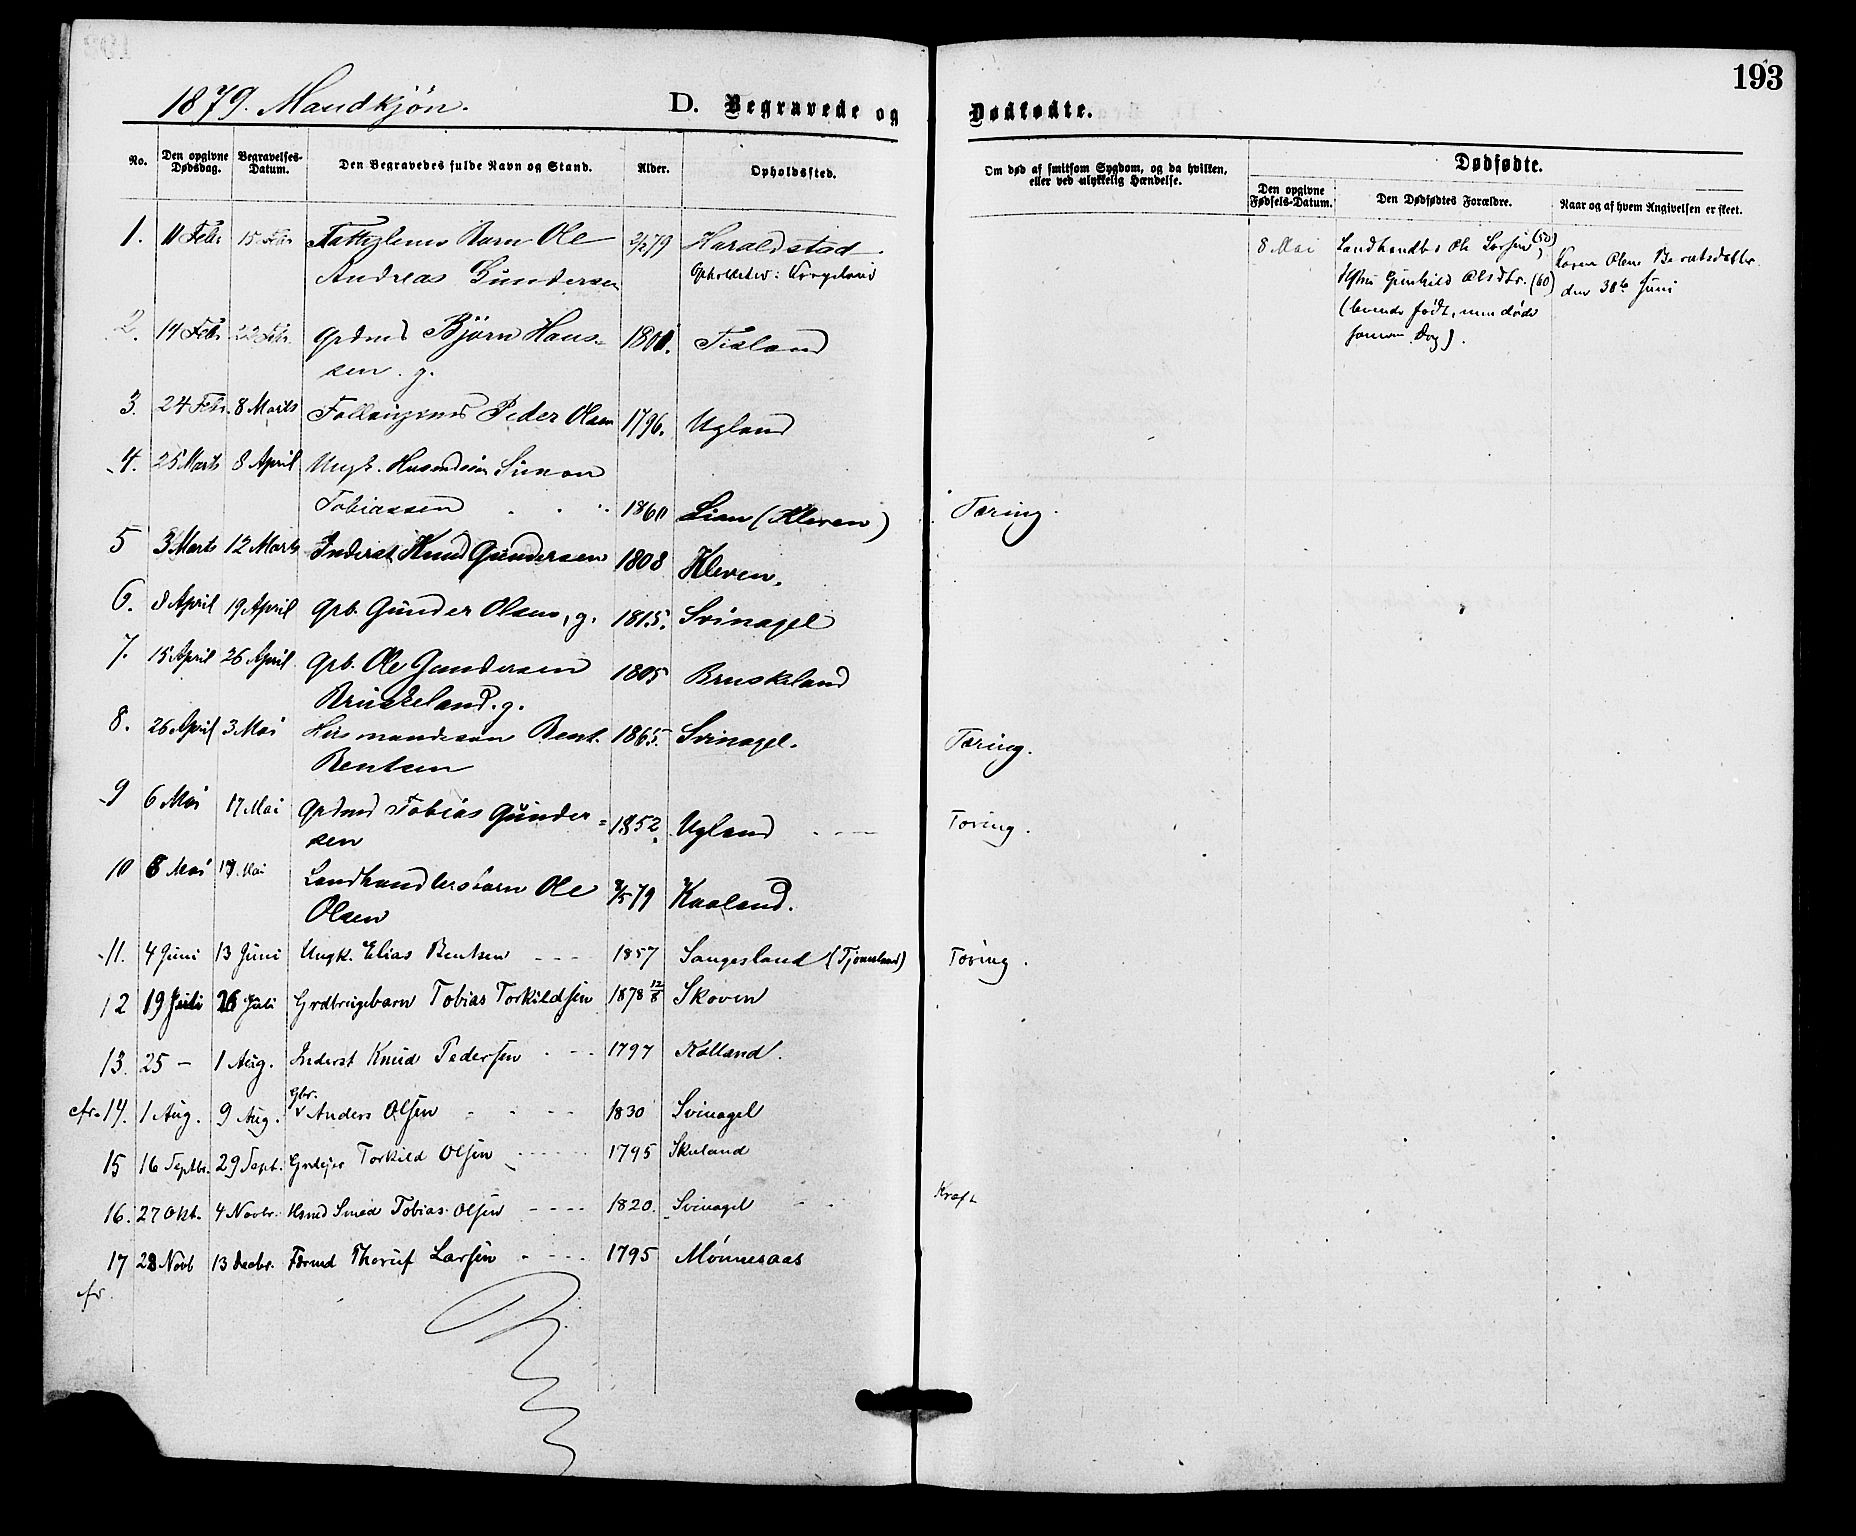 193
1879. Mandkjøn. D. Begravede og Dødfødte.
No. Den opgivne Dødsdag. Begravelses-Datum. Den Begravedes fulde Navn og Stand. Alder. Opholdssted. Om død af smitsom Sygdom, og da hvilken, eller ved ulykkelig Hændelse. Dødfødte.
Den opgivne Fødsels-Datum. Den Dødfødtes Forældre. Naar og af hvem Angivelsen er skeet.
1. 11 Febr 15 Febr Barn Ole 79 Haraldstad
Andreas Gundersen Opholdsted:
8 Mai Landhandler Ole Larsen (50)
Hstru Gunhild Olsdtr. (60)
(levende født, men døde
samme Dag).
Karen Olene Berntsdatter
den 30te Juni
2. 14 Febr 22 Febr. Grdmd Bjørn Hans=
sen. g. 1801. Tisland
3. 24 Febr. 8 Marts Peder Olsen 1796. Ugland
4. 25 Marts 8 April Ungk. Simon
Tobiassen 1860 Lian (Kleven) Tæring.
5 3 Marts 12 Marts Inderst Knud Gundersen 1808 Kleven.
6. 8 April 19 April Grb. Gunder Olsen, g. 1815. Svinagel
7. 15 April 26 April Grb. Ole Gundersen 1805 Bruskeland
Bruskeland. g.
8. 26 April 3 Mai Husmandssøn Bent 1865. Svinagel. Tæring.
Bentsen
9 6 Mai 17 Mai Grdmd Tobias Gunder=
sen 1852. Ugland Tæring.
10 8 Mai 17. Mai Landhandlersbarn Ole
Olsen 8/5 79 Kaaland.
11. 4 Juni 13 Juni Ungk. Elias Bentsen 1857 Sangesland (Tjomsland) Tæring.
12 19 Juli 26 Juli Grdbrugebarn Tobias Torkildsen 1878 12/8 Skoven
13. 25 – 1 Aug. Inderst Knud Pedersen 1797
cfr. 14. 1 Aug. 9 Aug. Gbr. Anders Olsen 1830 Svinagel
15 16 Septbr. 29 Sept. Grdejer Torkild Olsen 1795 Skuland
16. 27 Okt. 4 Novbr. Hsmd Smed Tobias Olsen 1820. Svinagel Kræft
17 28 Novb 13 Decbr. Larsen 1795 Mønnesaas
cfr.